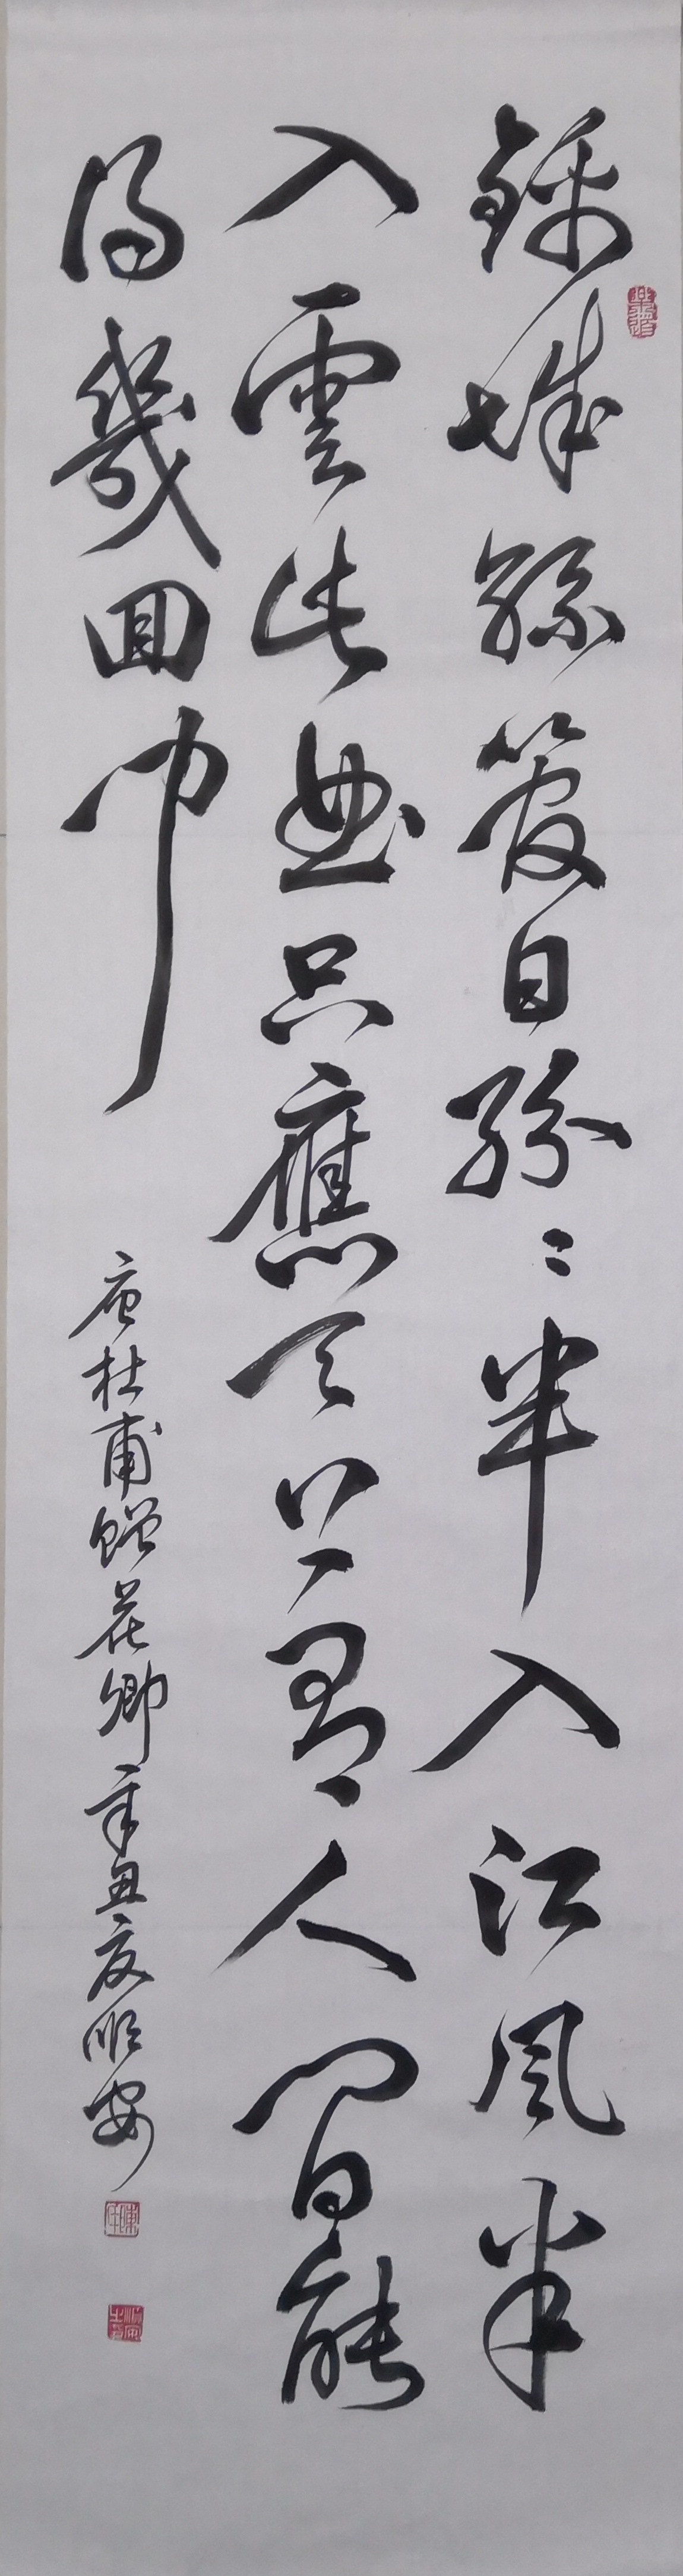 錦城絲管日紛〻半入江風半
入雲此曲只應天上有人間能
得幾回聞
唐杜甫贈花卿 辛丑夏順安